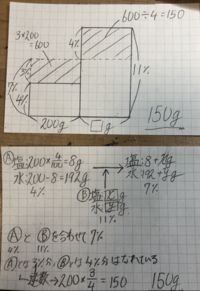 600÷4=150
3×200
=600
4%
3%
7%
4%
11%
200g
□g
150g
Ⓐ 塩:200×4/100=8g
水:200-8=192g
4%
塩:8+□g
水:192+□g
7%
Ⓑ塩□g
水□g
11%
ⒶとⒷを合わせて7%
4% 11%
Ⓐは3%分、Ⓑは4%分はなれている
→逆数→200×3/4=150
150g